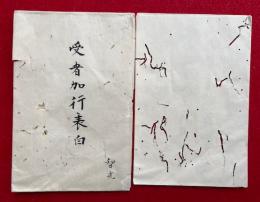 受者加行表白
智光